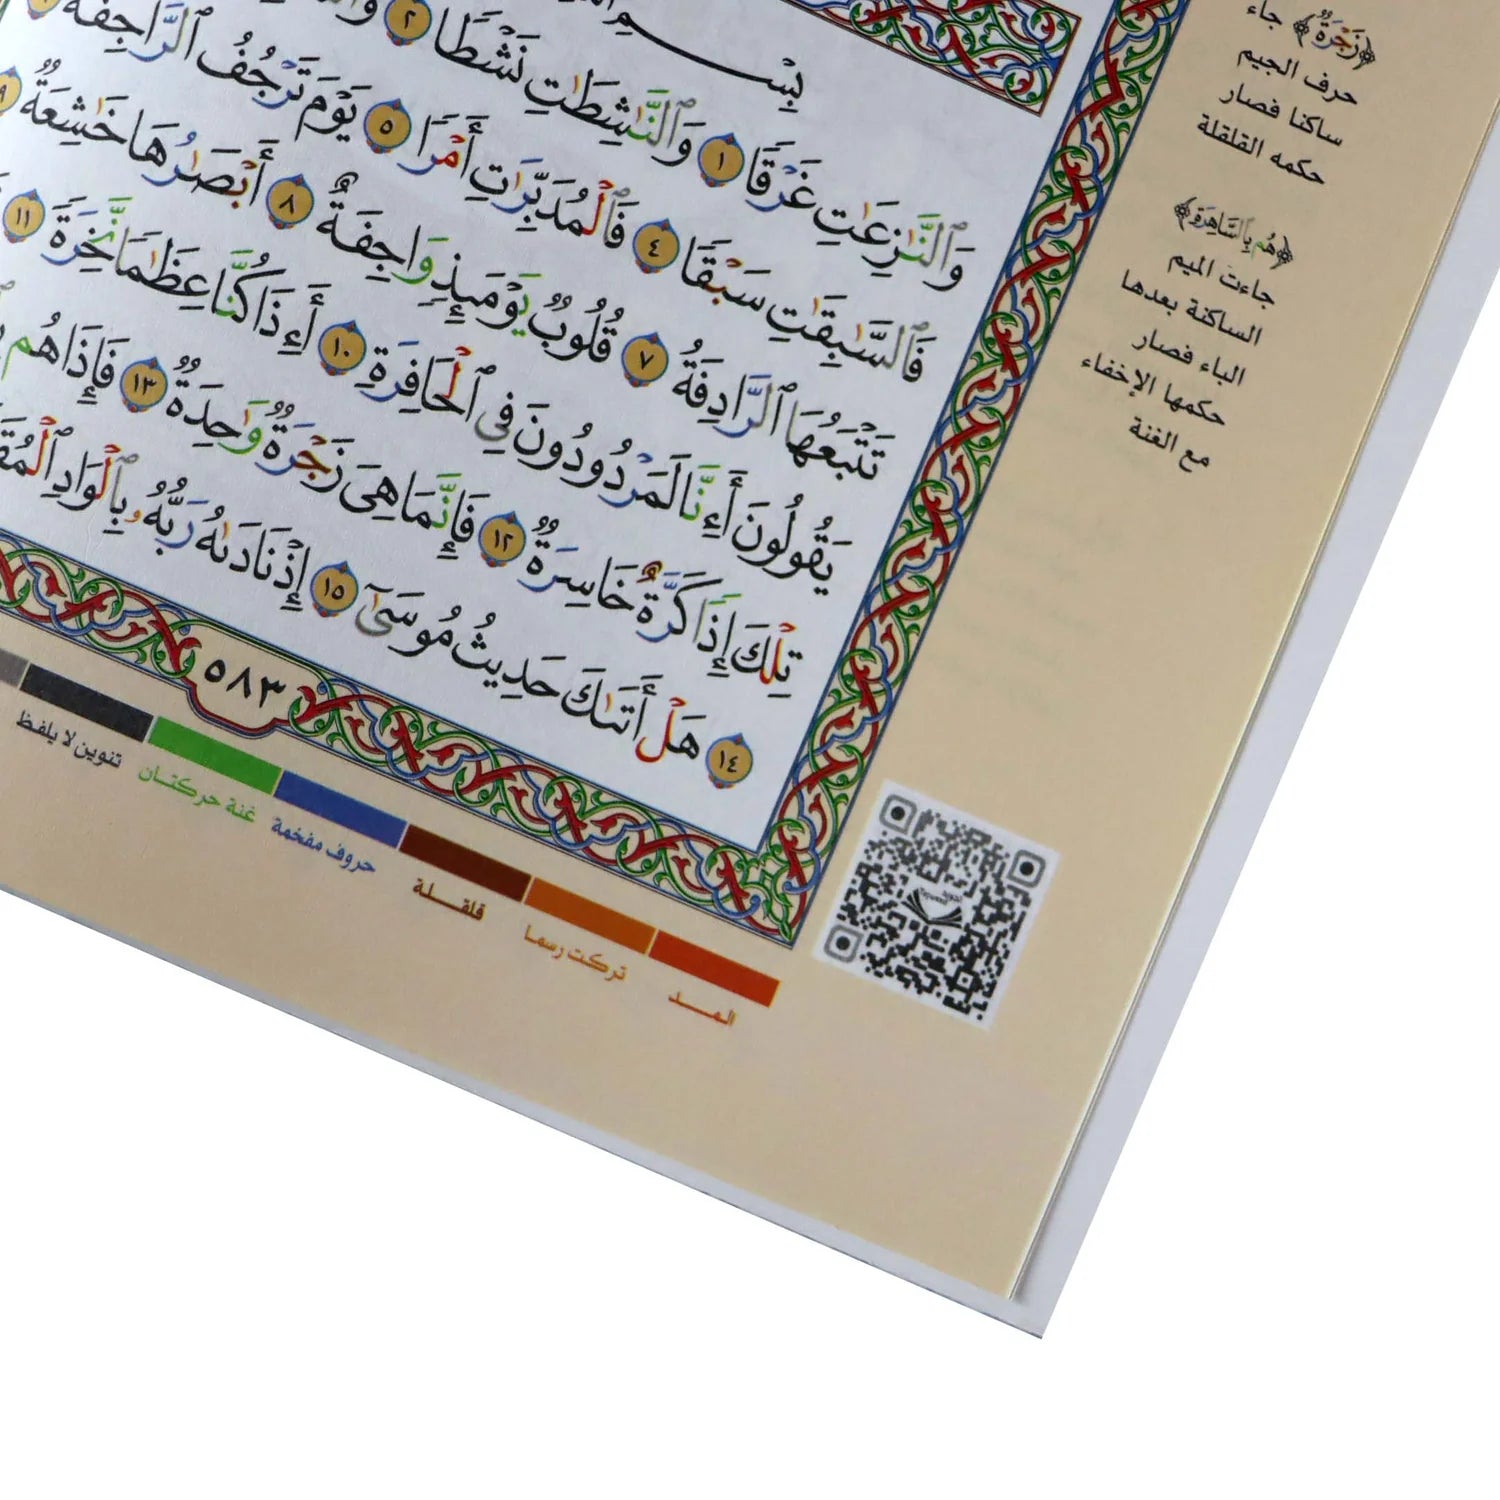 بِسْمِ
وَٱلنَّٰزِعَٰتِ غَرْقًا ١ وَٱلنَّٰشِطَٰتِ نَشْطًا ٢
فَٱلسَّٰبِقَٰتِ سَبْقًا ٤ فَٱلْمُدَبِّرَٰتِ أَمْرًا ٥ يَوْمَ تَرْجُفُ ٱلرَّاجِفَةُ
تَتْبَعُهَا ٱلرَّادِفَةُ ٧ قُلُوبٌ يَوْمَئِذٍ وَاجِفَةٌ ٨ أَبْصَٰرُهَا خَٰشِعَةٌ ٩
يَقُولُونَ أَءِنَّا لَمَرْدُودُونَ فِى ٱلْحَافِرَةِ ١٠ أَءِذَا كُنَّا عِظَٰمًا نَّخِرَةً ١١
تِلْكَ إِذًا كَرَّةٌ خَاسِرَةٌ ١٢ فَإِنَّمَا هِىَ زَجْرَةٌ وَٰحِدَةٌ ١٣ فَإِذَا هُم
١٤ هَلْ أَتَىٰكَ حَدِيثُ مُوسَىٰٓ ١٥ إِذْ نَادَىٰهُ رَبُّهُۥ بِٱلْوَادِ
٥٨٣
﴿زَجْرَةٌ﴾ جاء
حرف الجيم
ساكنا فصار
حكمه القلقلة
﴿هُم بِٱلسَّاهِرَةِ﴾
جاءت الميم
الساكنة بعدها
الباء فصار
حكمها الإخفاء
مع الغنة
المـــد
تركت رسما
قلقـــلة
حروف مفخمة
غنة حركتـان
تنوين لا يلفظ